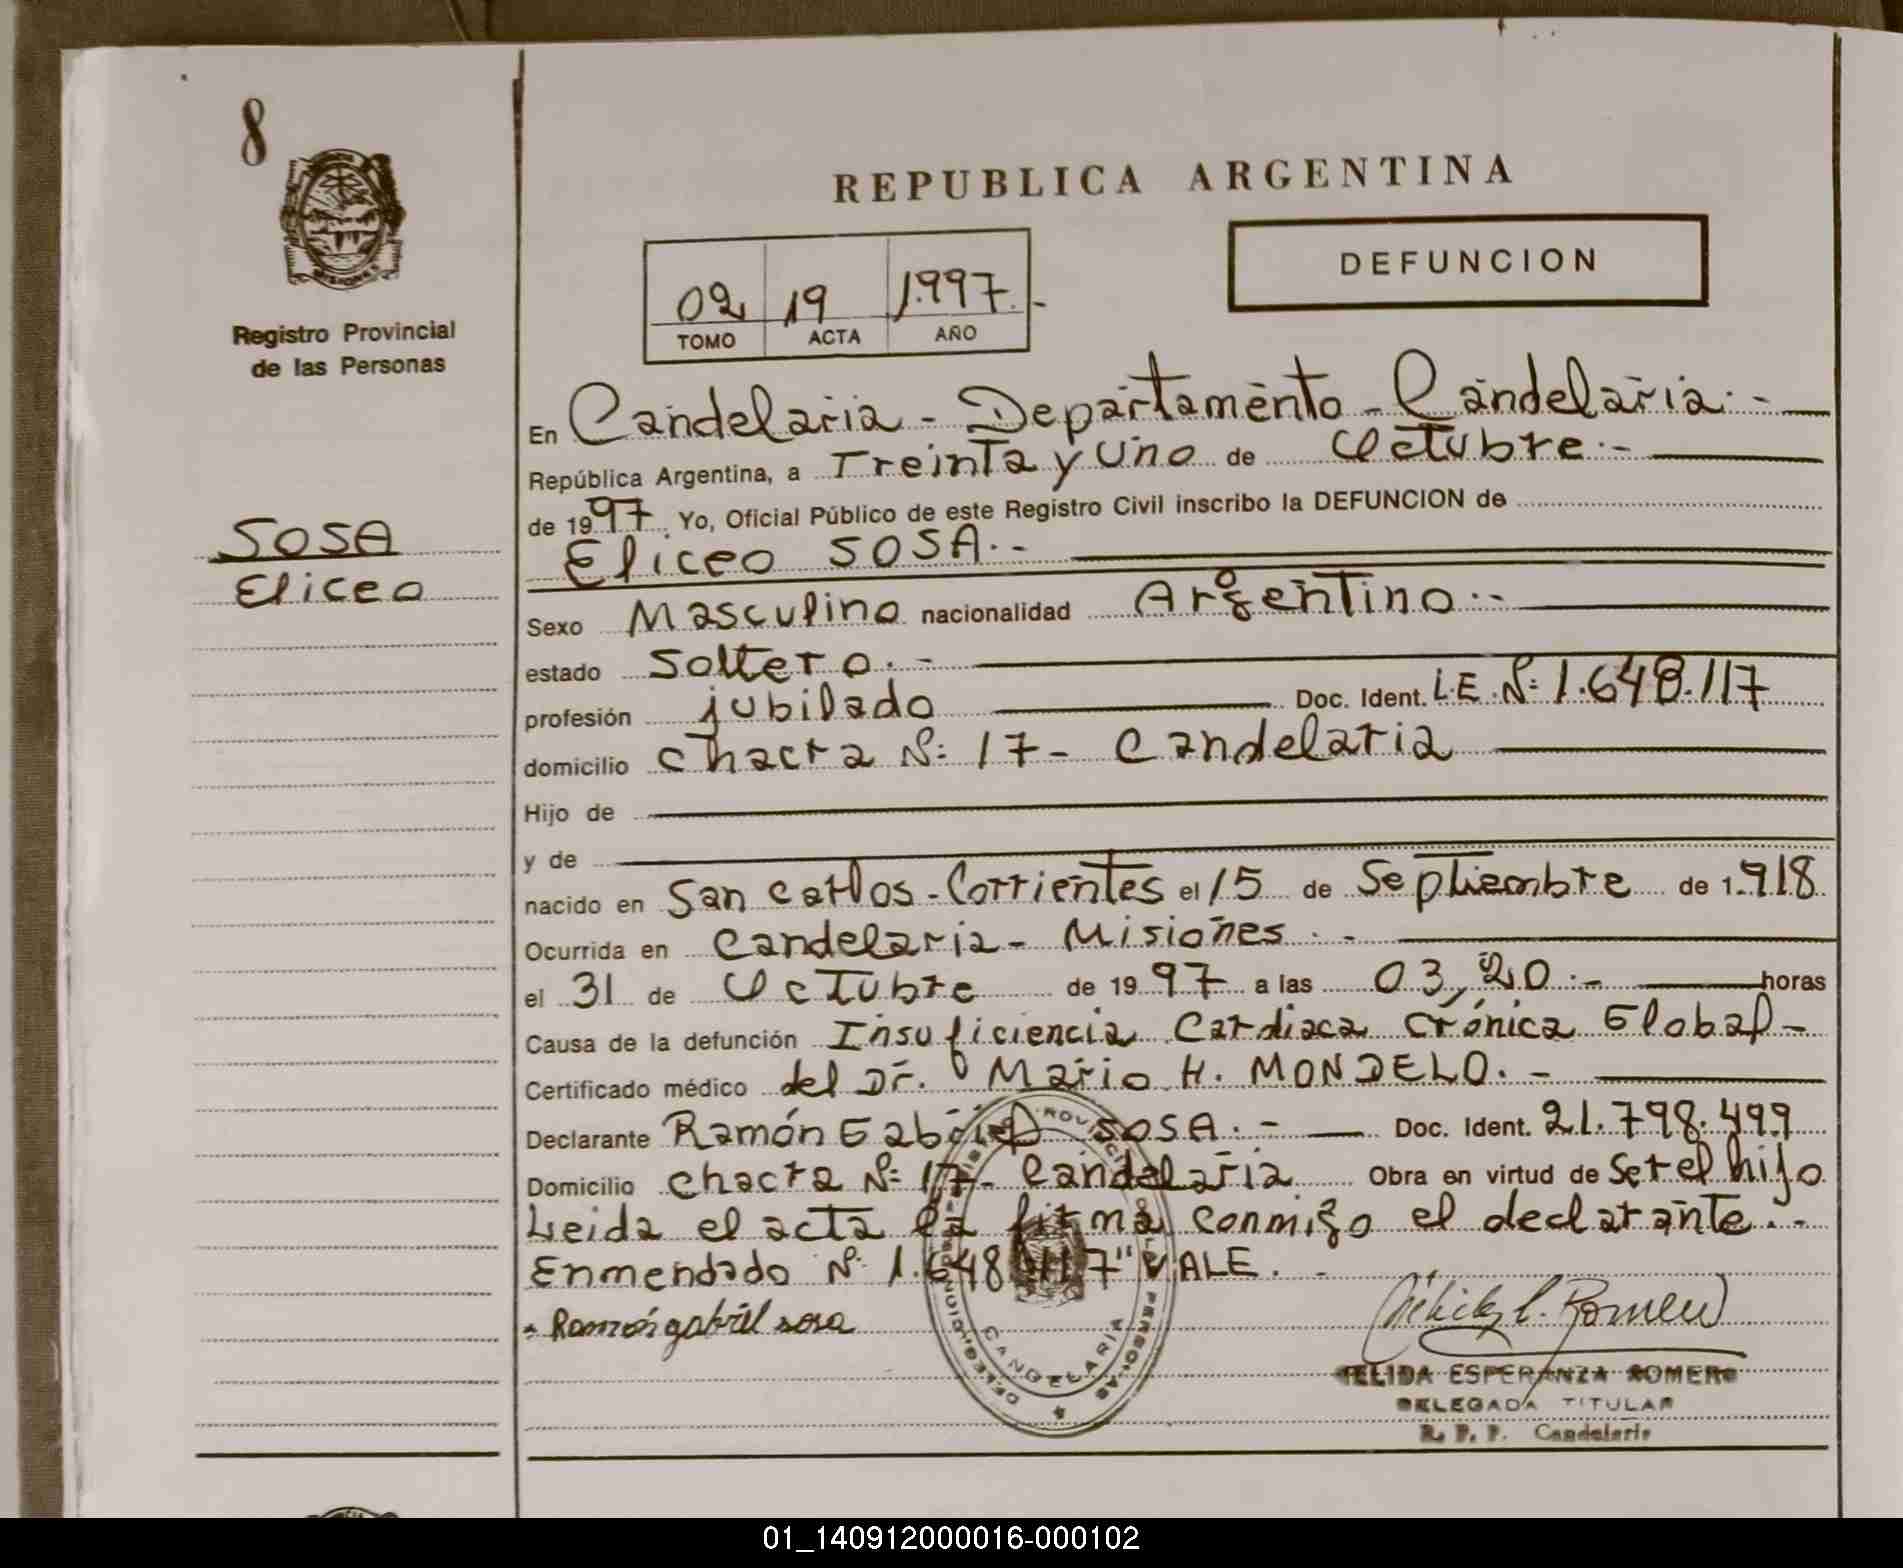 8
MISIONES
Registro Provincial
de las Personas
SOSA
Eliceo
REPUBLICA ARGENTINA
DEFUNCION
02 19 1.997.-
TOMO ACTA AÑO
En Candelaria - Departamento - Candelaria.-
República Argentina, a Treinta y Uno de Octubre.-
de 1997. Yo, Oficial Público de este Registro Civil inscribo la DEFUNCION de
Eliceo SOSA.-
Sexo Masculino nacionalidad Argentino.-
estado Soltero.-
profesión jubilado Doc. Ident. L.E. Nº 1.648.117
domicilio Chacra Nº 17 - Candelaria
Hijo de
y de
nacido en San Carlos - Corrientes el 15 de Septiembre de 1.918
Ocurrida en Candelaria - Misiones.-
el 31 de Octubre de 1997 a las 03,20.- horas
Causa de la defunción Insuficiencia Cardiaca Crónica Global -
Certificado médico del Dr. Mario H. MONDELO.-
Declarante Ramón Gabriel SOSA.- Doc. Ident. 21.798.499
Domicilio Chacra Nº 17 - Candelaria Obra en virtud de Ser el hijo
Leida el acta la firma conmigo el declarante.-
Enmendado Nº 1.648.117" VALE.
- Ramón gabriel sosa
CANDELARIA
ELIDA ESPERANZA ROMERO
DELEGADA TITULAR
R. P. P. Candelaria
01_140912000016-000102